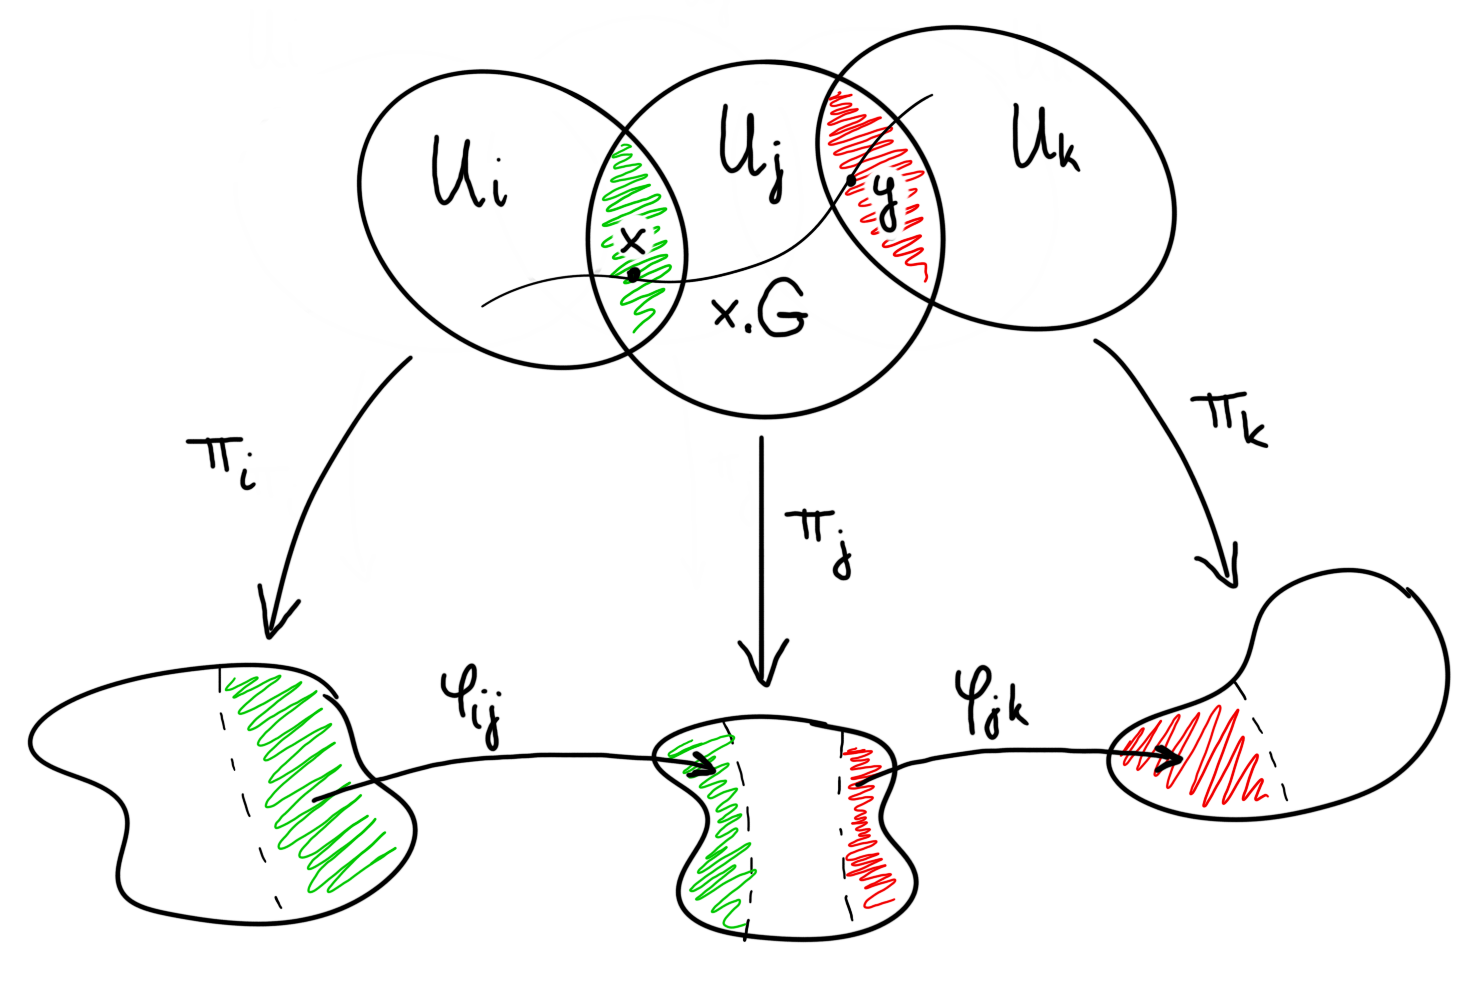 U_i
U_j
U_k
x
y
x.G
π_i
π_j
π_k
φ_ij
φ_jk